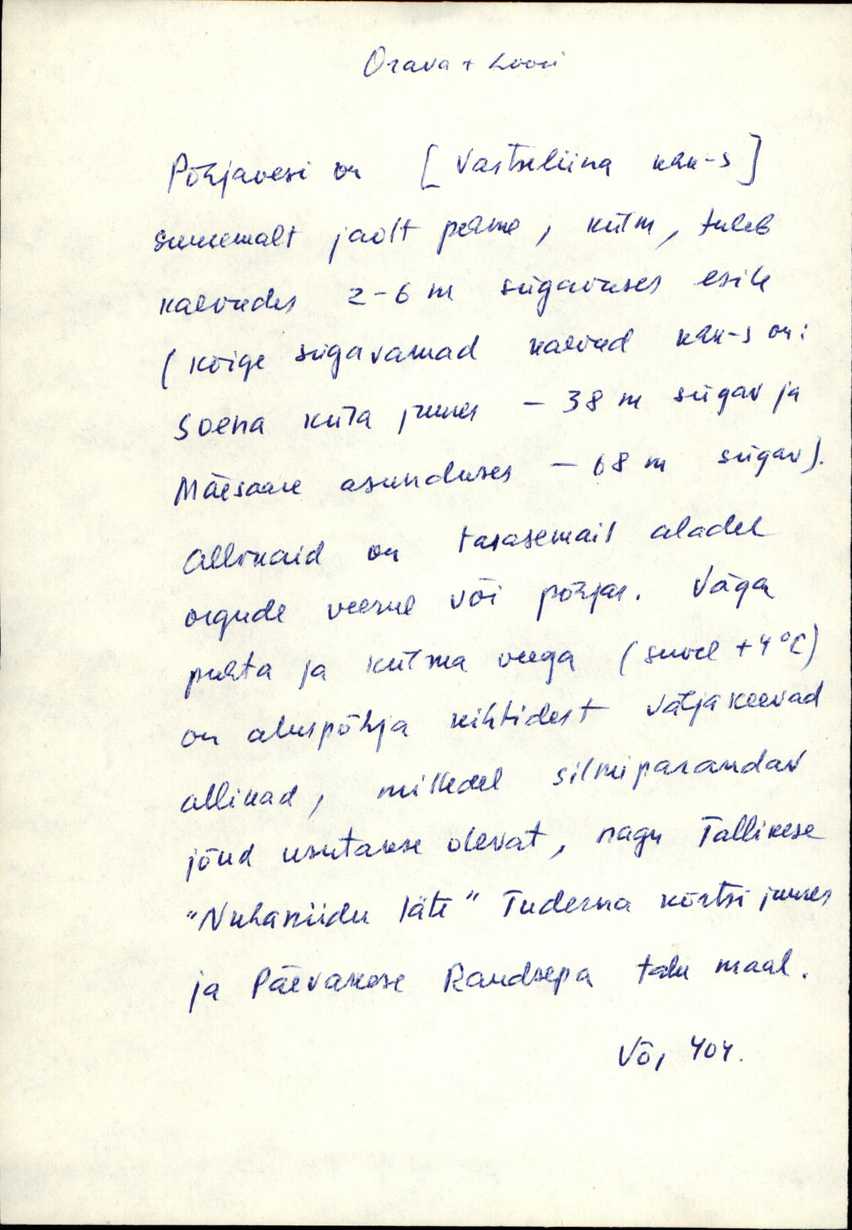 Orava + Loosi
Põhjavesi on [Vastseliina khk-s]
suuremalt jaolt pehme, külm, tuleb
kaevudes 2-6 m sügavuses esile
(kõige sügavamad kaevud khk-s on:
Soena küla juures - 38 m sügav ja
Mäesaare asunduses - 68 m sügav).
Allikaid on tasasemail aladel
orgude veerul või põhjas. Väga
puhta ja külma veega (suvel +4°C)
on aluspõhja kihtidest väljakeevad
allikad, milledel silmiparandav
jõud usutakse olevat, nagu Tallikese
"Nuhaniidu läte" Tuderna kõrtsi juures
ja Päevakese Raudsepa talu maal.
Võ, 404.